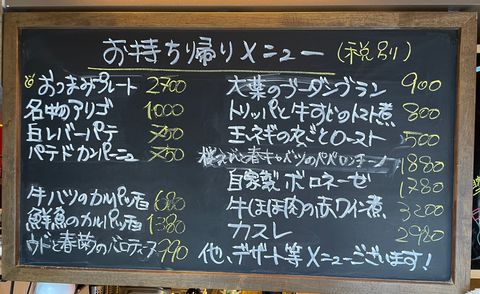 お持ち帰りメニュー (税別)
おつまみプレート 2700
名物のアリゴ 1000
白レバーパテ 750
パテドカンパーニュ 750
牛バツのカルパッチョ 680
鮮魚のカルパッチョ 1380
ウドと春菊の 990
大葉のブーダンブラン 900
トリッパと牛すじのトマト煮 800
玉ネギの丸ごとロースト 500
桜えびと春キャベツのペペロンチーノ 1880
自家製ボロネーゼ 1780
牛ほほ肉の赤ワイン煮 3200
カスレ 2980
他、デザート等メニューございます!